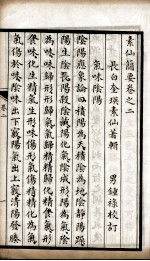 素仙簡要卷之二
長白奎瑛素仙著輯　男鍾祿校訂
氣味陰陽
陰陽應象論曰積陽為天積陰為地陰靜陽躁
陽生陰長陽殺陰藏陽化氣陰成形陽為氣陰
為味味歸形形歸氣氣歸精精歸化精食氣形
食味化生精氣生形味傷形氣傷精精化為氣
氣傷於味陰味出下竅陽氣出上竅清陽發腠